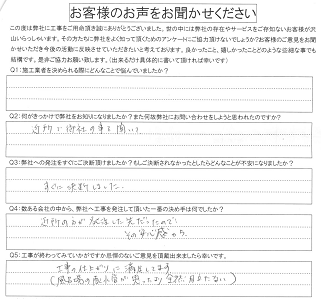 お客様のお声をお聞かせください
この度は弊社に工事をご用命頂き誠にありがとうございました。世の中には弊社の存在やサービスをご存知ないお客様が沢
山いらっしゃいます。その方たちに弊社をよく知って頂くためのアンケートにご協力頂けないでしょうか？お客様のご意見をお聞
かせいただき今後の活動に反映させていただきたいと考えております。良かったこと、嬉しかったことどのような些細な事でも
結構です。是非ご協力お願い致します。(出来るだけ具体的に書いて頂ければ幸いです)
Q1：施工業者を決められる際にどんなことで悩んでいましたか？
Q2：何がきっかけで弊社をお知りになりましたか？また何故弊社にお問い合わせをしようと思われたのですか？
近所で御社の事を聞いて
Q3：弊社への発注をすぐにご決断頂けましたか？もしご決断されなかったとしたらどんなことが不安になりましたか？
すぐに決断しました
Q4：数ある会社の中から、弊社へ工事を発注して頂いた一番の決め手は何でしたか？
近所の方が発注した先だったので、
その安心感から
Q5：工事が終わってみていかがですか忌憚のないご意見を頂戴出来ましたら幸いです。
工事の仕上がりに満足してます